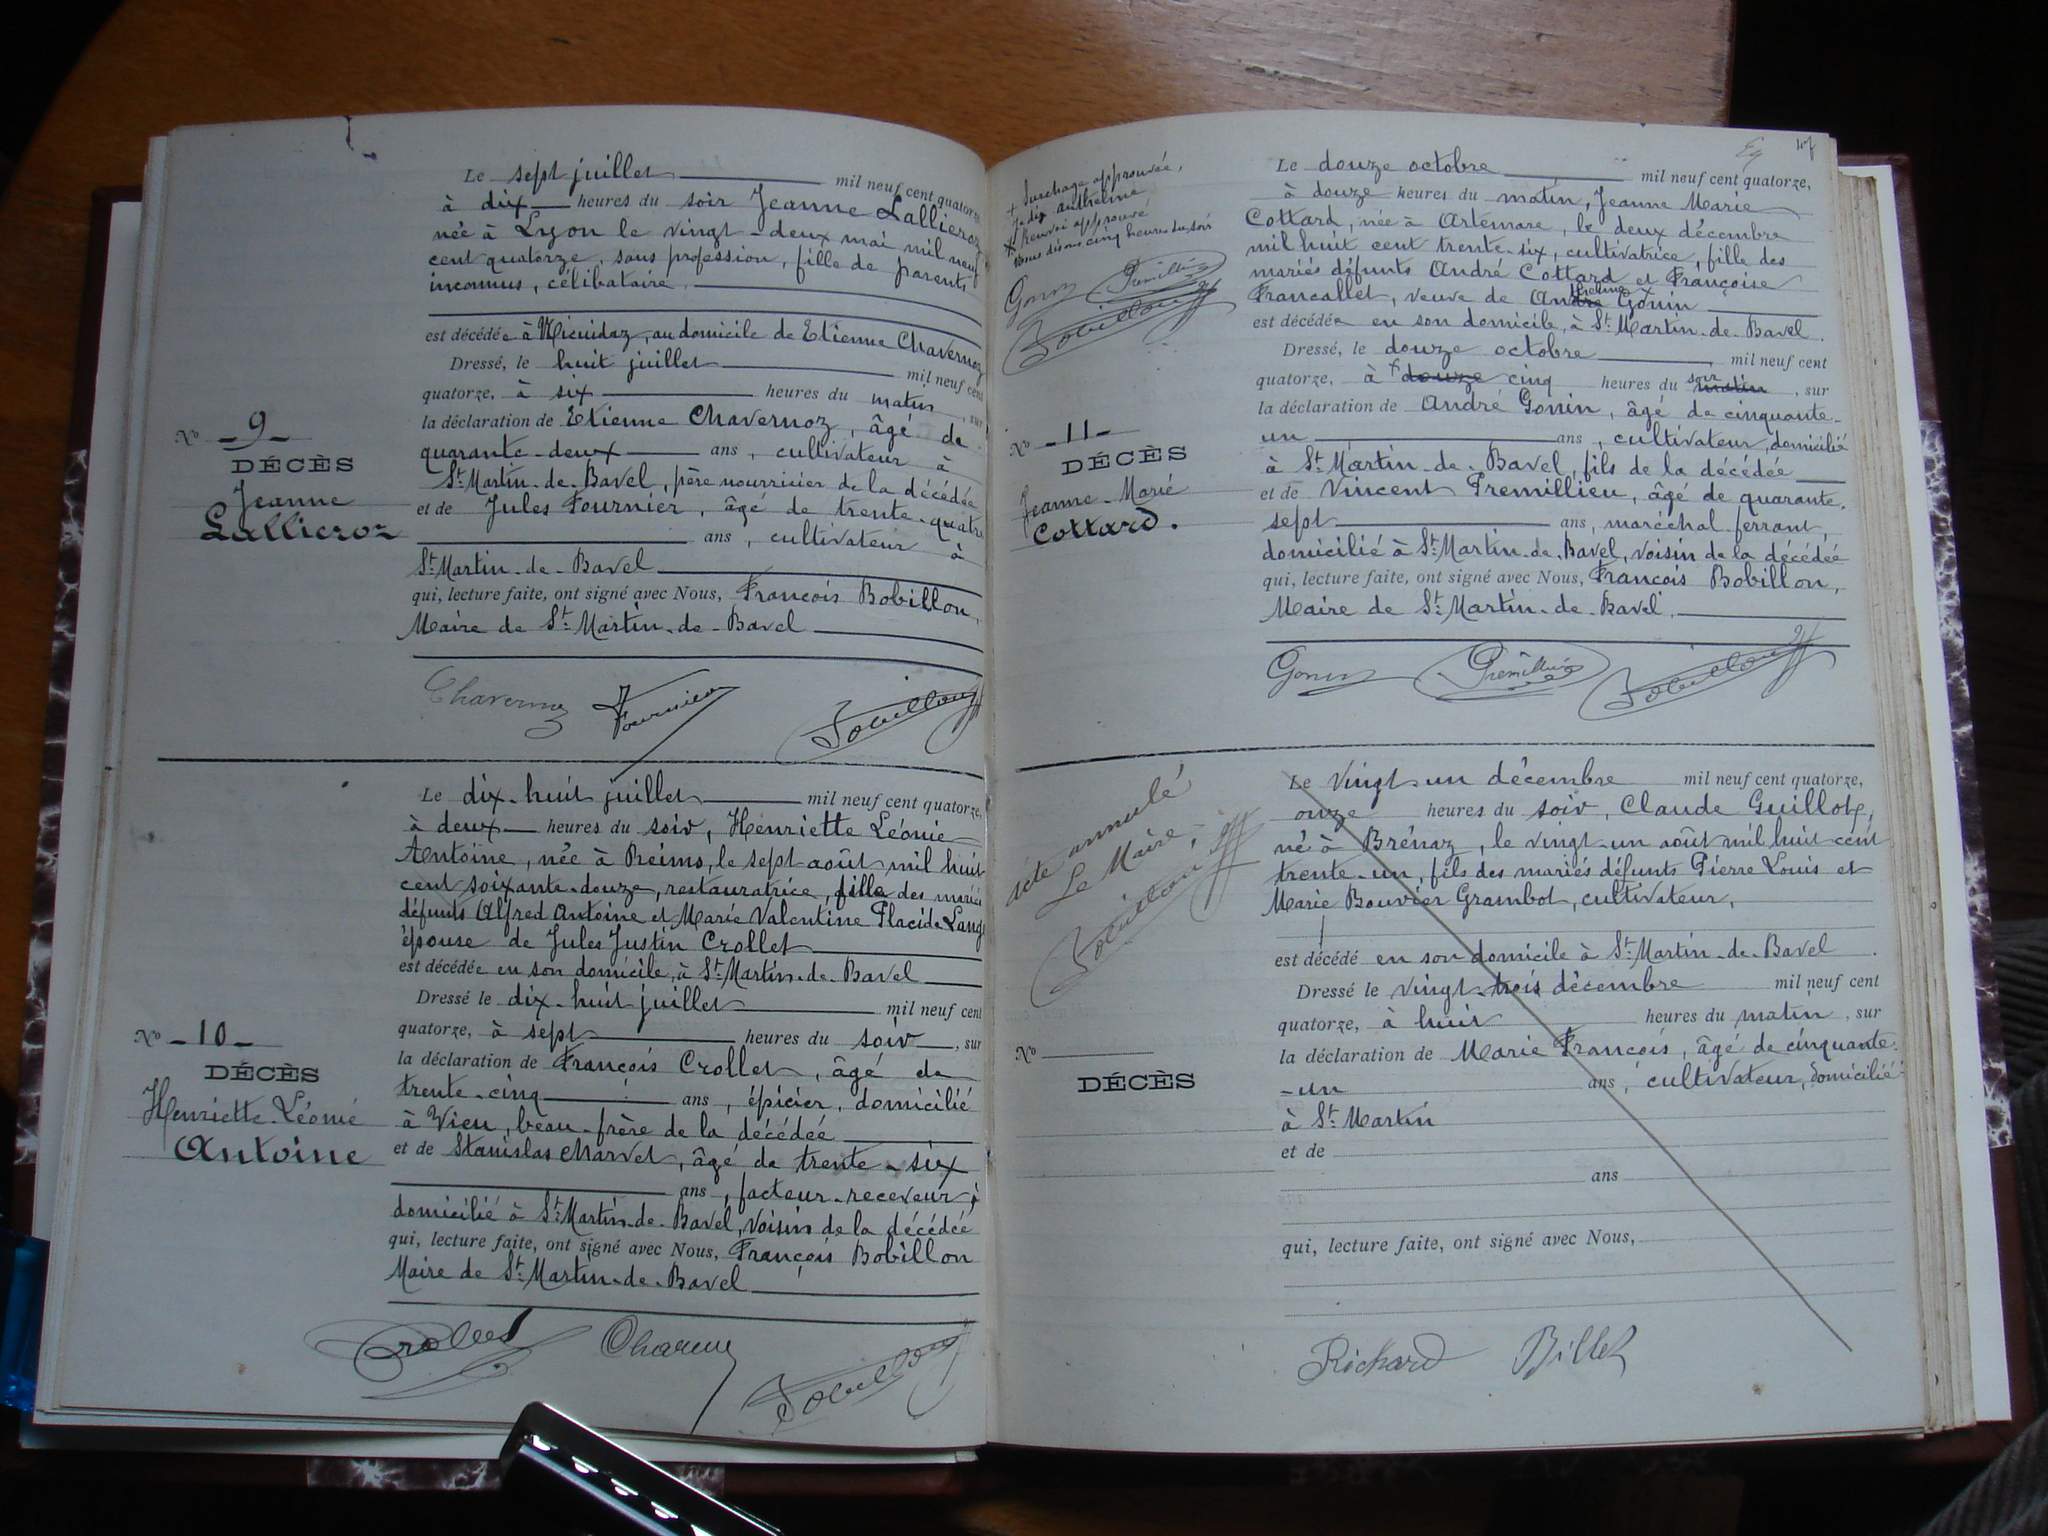 Le sept juillet mil neuf cent quatorze
à dix heures du soir Jeanne Lallieroz
née à Lyon le vingt-deux mai mil neuf
cent quatorze, sans profession, fille de parents
inconnus, célibataire.
est décédée à au domicile de Etienne Chavernoz
Dressé, le huit juillet mil neuf cent
quatorze, à six heures du matin, sur
la déclaration de Etienne Chavernoz, âgé de
quarante-deux ans, cultivateur à
St. Martin-de-Bavel, père nourricier de la décédée
et de Jules Fournier, âgé de trente-quatre
ans, cultivateur à
St. Martin-de-Bavel
qui, lecture faite, ont signé avec Nous, François Bobillon,
Maire de St. Martin-de-Bavel
No -9-
DÉCÈS
Jeanne
Lallieroz
Chavernoz Fournier Bobillon
Le dix-huit juillet mil neuf cent quatorze,
à deux heures du soir, Henriette Léonie
Antoine, née à Reims, le sept août mil huit
cent soixante-douze, restauratrice, fille des mariés
défunts Alfred Antoine et Marie Valentine Placide Lang
épouse de Jules Justin Crollet
est décédée en son domicile, à St. Martin-de-Bavel
Dressé le dix-huit juillet mil neuf cent
quatorze, à sept heures du soir, sur
la déclaration de François Crollet, âgé de
trente-cinq ans, épicier, domicilié
à Vieu, beau-frère de la décédée
et de Stanislas Charvet, âgé de trente-six
ans, facteur-receveur,
domicilié à St. Martin-de-Bavel, voisin de la décédée
qui, lecture faite, ont signé avec Nous, François Bobillon
Maire de St. Martin-de-Bavel
No -10-
DÉCÈS
Henriette-Léonie
Antoine
Crollet Bobillon
+ Surchage approuvée,
je dis anthelme
+ Renvoi approuvé
Nous disons cinq heures du soir
Gonin Premillieu
Bobillon
Le douze octobre mil neuf cent quatorze,
à douze heures du matin, Jeanne Marie
Cottard, née à Artemare, le deux décembre
mil huit cent trente-six, cultivatrice, fille des
mariés défunts André Cottard et Françoise
Francallet, veuve de Anthelme Gonin
est décédée en son domicile, à St. Martin-de-Bavel.
Dressé, le douze octobre mil neuf cent
quatorze, à + douze cinq heures du soir matin, sur
la déclaration de André Gonin, âgé de cinquante-
un ans, cultivateur, domicilié
à St. Martin-de-Bavel, fils de la décédée
et de Vincent Premillieu, âgé de quarante-
sept ans, maréchal-ferrant,
domicilié à St. Martin-de-Bavel, voisin de la décédée
qui, lecture faite, ont signé avec Nous, François Bobillon,
Maire de St. Martin-de-Bavel.
No -11-
DÉCÈS
Jeanne-Marie
Cottard.
Gonin Premillieu Bobillon
acte annulé
Le Maire,
Bobillon
Le vingt-un décembre mil neuf cent quatorze,
onze heures du soir, Claude Guillot,
né à Brénaz, le vingt-un août mil huit cent
trente-un, fils des mariés défunts Pierre Louis et
Marie Bouvier Grambot, cultivateur,
est décédé en son domicile à St. Martin-de-Bavel
Dressé le vingt-trois décembre mil neuf cent
quatorze, à huit heures du matin, sur
la déclaration de Marie François, âgé de cinquante-
-un ans, cultivateur, domicilié
à St. Martin
et de
ans
qui, lecture faite, ont signé avec Nous,
No
DÉCÈS
Richard Billet